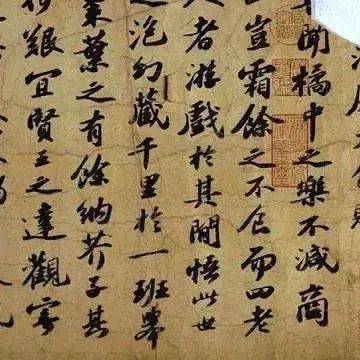 聞橘中之樂不減商
山豈霜餘之不食而四老
人者游戲於其間悟此世
之泡幻藏千里於一班舉
棗葉之有餘納芥子其
何艱宜賢王之達觀寄